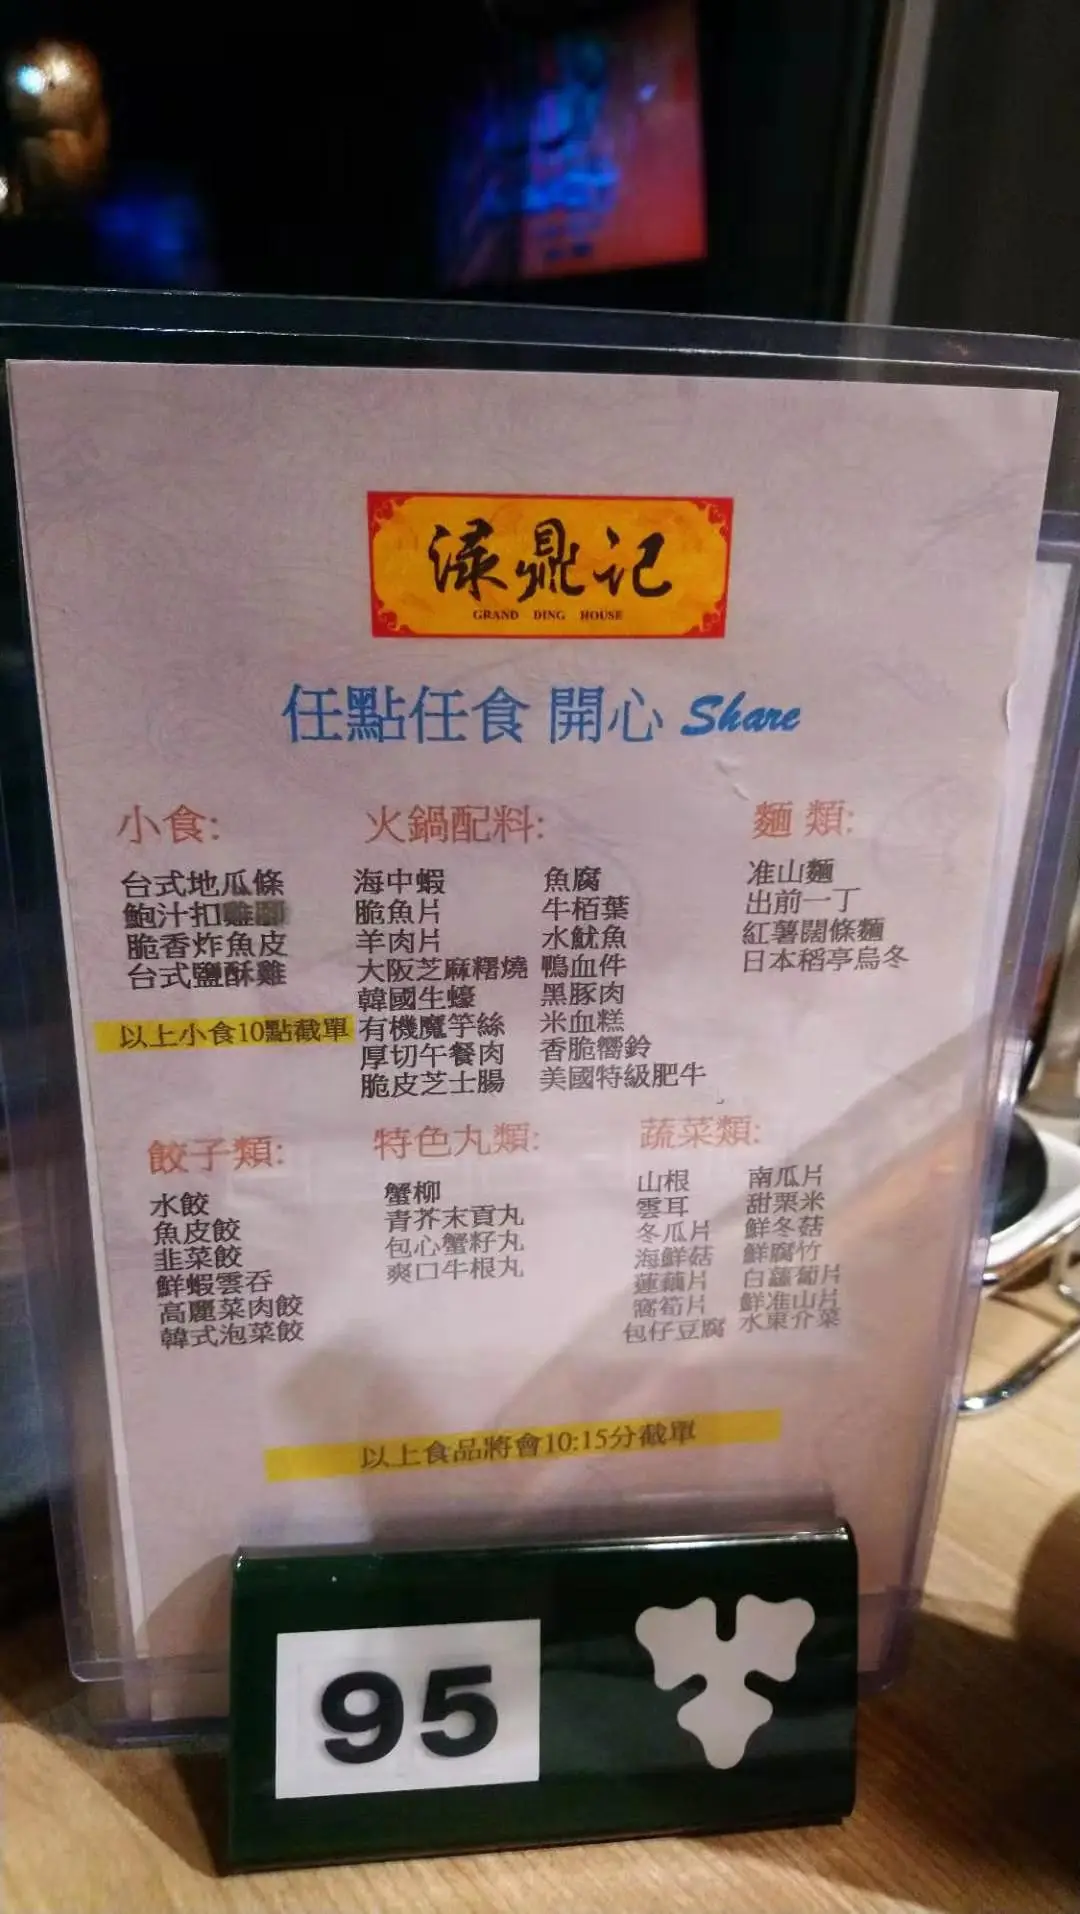 渌鼎记
GRAND DING HOUSE
任點任食 開心 Share
小食:
台式地瓜條
鮑汁扣雞腳
脆香炸魚皮
台式鹽酥雞
以上小食10點截單
火鍋配料:
海中蝦
脆魚片
羊肉片
大阪芝麻糬燒
韓國生蠔
有機魔竽絲
厚切午餐肉
脆皮芝士腸
魚腐
牛栢葉
水魷魚
鴨血件
黑豚肉
米血糕
香脆嚮鈴
美國特級肥牛
麵 類:
准山麵
出前一丁
紅薯闊條麵
日本稻亭烏冬
餃子類:
水餃
魚皮餃
韭菜餃
鮮蝦雲吞
高麗菜肉餃
韓式泡菜餃
特色丸類:
蟹柳
青芥末貢丸
包心蟹籽丸
爽口牛根丸
蔬菜類:
山根
雲耳
冬瓜片
海鮮菇
蓮藕片
窩筍片
包仔豆腐
南瓜片
甜栗米
鮮冬菇
鮮腐竹
白蘿蔔片
鮮准山片
水東介菜
以上食品將會10:15分截單
95